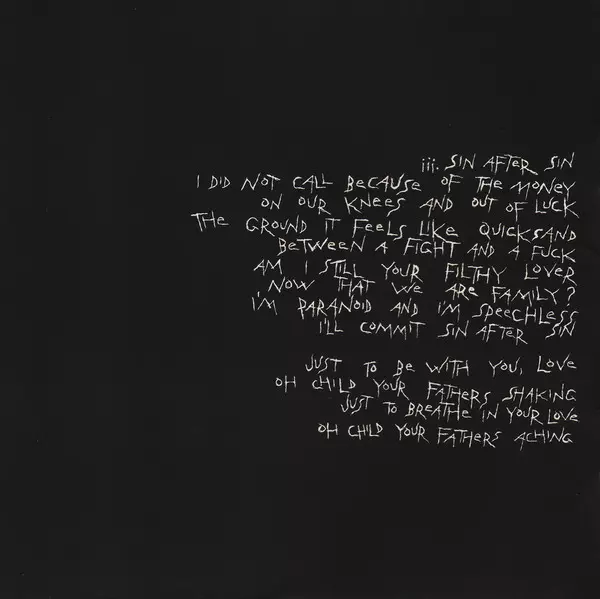 iii. SIN AFTER SIN
I DID NOT CALL BECAUSE OF THE MONEY
ON OUR KNEES AND OUT OF LUCK
THE GROUND IT FEELS LIKE QUICKSAND
BETWEEN A FIGHT AND A FUCK
AM I STILL YOUR FILTHY LOVER
NOW THAT WE ARE FAMILY?
I'M PARANOID AND I'M SPEECHLESS
I'LL COMMIT SIN AFTER SIN
JUST TO BE WITH YOU, LOVE
OH CHILD YOUR FATHERS SHAKING
JUST TO BREATHE IN YOUR LOVE
OH CHILD YOUR FATHERS ACHING